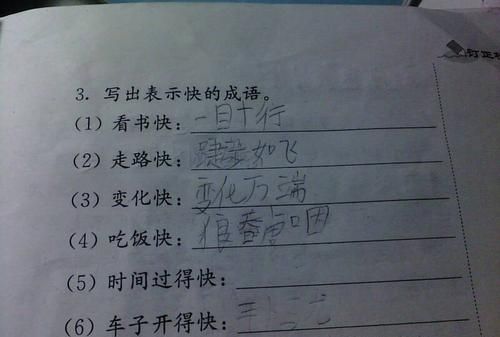 订正
3. 写出表示快的成语。
(1) 看书快：一目十行
(2) 走路快：如飞
(3) 变化快：变化万端
(4) 吃饭快：狼虎咽
(5) 时间过得快：
(6) 车子开得快：